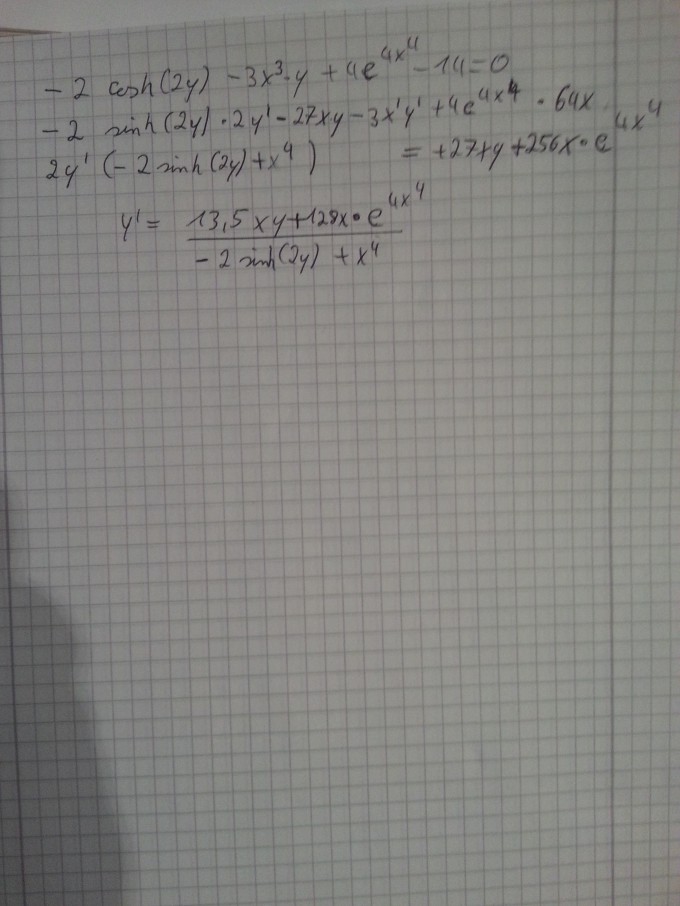 -2 cosh(2y) -3x³·y +4e^4x^4 -14=0
-2 sinh(2y)·2y' -27xy -3x'y' +4e^4x^4 ·64x
2y' (-2 sinh(2y)+x^4) = +27xy+256x·e^4x^4
y' = 13,5xy+128x·e^4x^4
-2 sinh(2y) +x^4